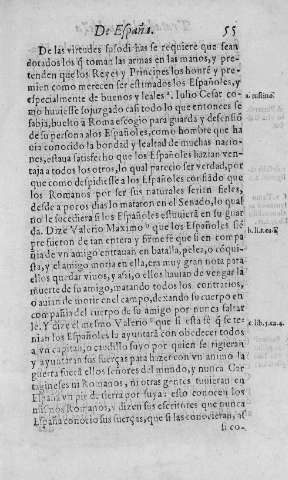 De España. 55
De las virtudes susodichas se requiere que sean
dotados los q̃ toman las armas en las manos, y pre-
tenden que los Reyes y Principes los honrẽ y pre-
mien como merecen ser estimados los Españoles, y
especialmente de buenos y leales ª. Iulio Cesar co- a. iustino.
mo huuiesse sojuzgado casi todo lo que entonces se
sabia, buelto a Roma escogio para guarda y defensiõ
de su persona alos Españoles, como hombre que ha
uia conocido la bondad y lealtad de muchas nacio-
nes, estaua satisfecho que los Españoles hazian ven-
taja a todos los otros, lo qual parecio ser verdad, por
que como despidiesse a los Españoles confiãdo que
los Romanos por ser sus naturales seriẽn fieles,
desde a pocos dias lo mataron en el Senado, lo qual
no le sucediera si los Españoles estuuierã en su guar
da. Dize Valerio Maximo que los Españoles siẽ
pre fueron de tan entera y firme fè que si en compa
ñia de vn amigo entrauan en batalla, pelea, o cõquí-
sta, y el amigo moria en ella, era muy gran nota para
ellos quedar viuos, y assi, o ellos hauian de vengar la
muerte de su amigo, matando todos los contrarios,
o auian de morir en el campo, dexando su cuerpo en
compañia del cuerpo de su amigo por nunca faltar
le. Y dize el mesmo Valerio que si esta fè q̃ se te-
nian los Españoles la ayuntarã con obedecer todos
a vn capitan, o caudillo suyo por quien se rigieran
y ayuntaran sus fuerças para hazer con vn animo la
guerra fuerã ellos señores del mundo, y nunca Car
tagineses ni Romanos, ni otras gentes tuuieran en
España vn pie de tierra por suya: esto conocen los
mismos Romanos, y dizen sus escritores que nunca
España conocio sus fuerças, que si las conocieran, as
si co-